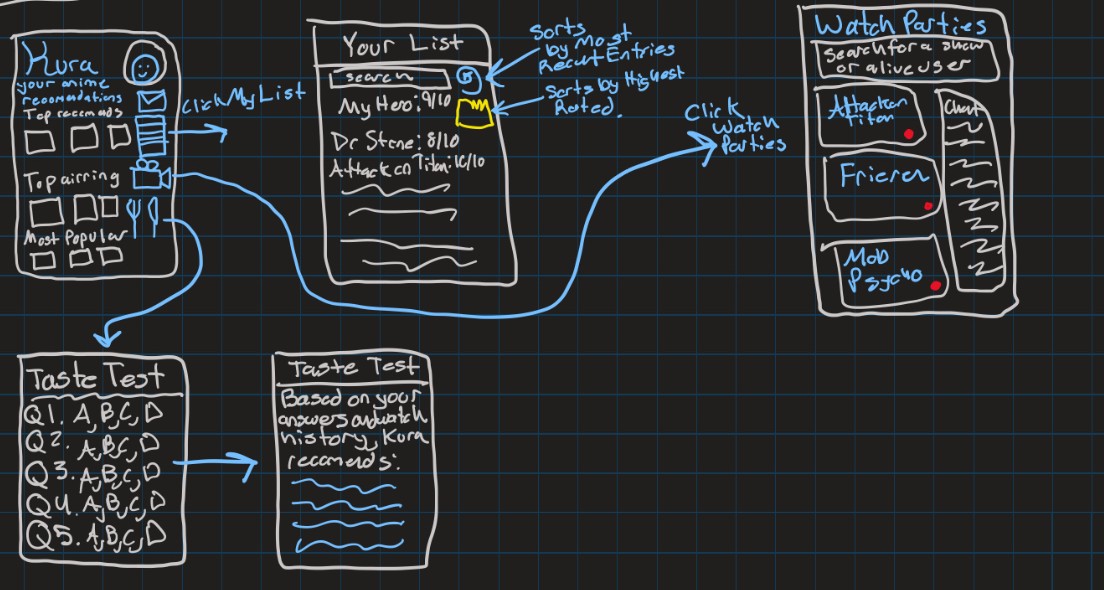 Kura
your anime
recomendations
Top recomends
Top airring
Most Popular
Click My List
Your List
search
My Hero: 9/10
Dr Stone: 8/10
Attack on Titan: 10/10
Sorts
by Most
Recent Entries
Sorts by Highest
Rated.
Click
Watch
Parties
Watch Parties
Search for a show
or a live user
Attack on
Titan
Frieren
Mob
Psycho
Chat
Taste Test
Q1. A, B, C, D
Q2. A, B, C, D
Q3. A, B, C, D
Q4. A, B, C, D
Q5. A, B, C, D
Taste Test
Based on your
answers and watch
history, Kura
recomends: